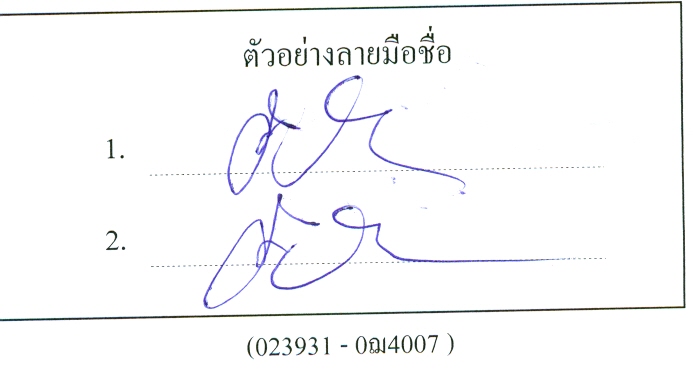 ตัวอย่างลายมือชื่อ
1.
2.
(023931 - 0ฌ4007 )